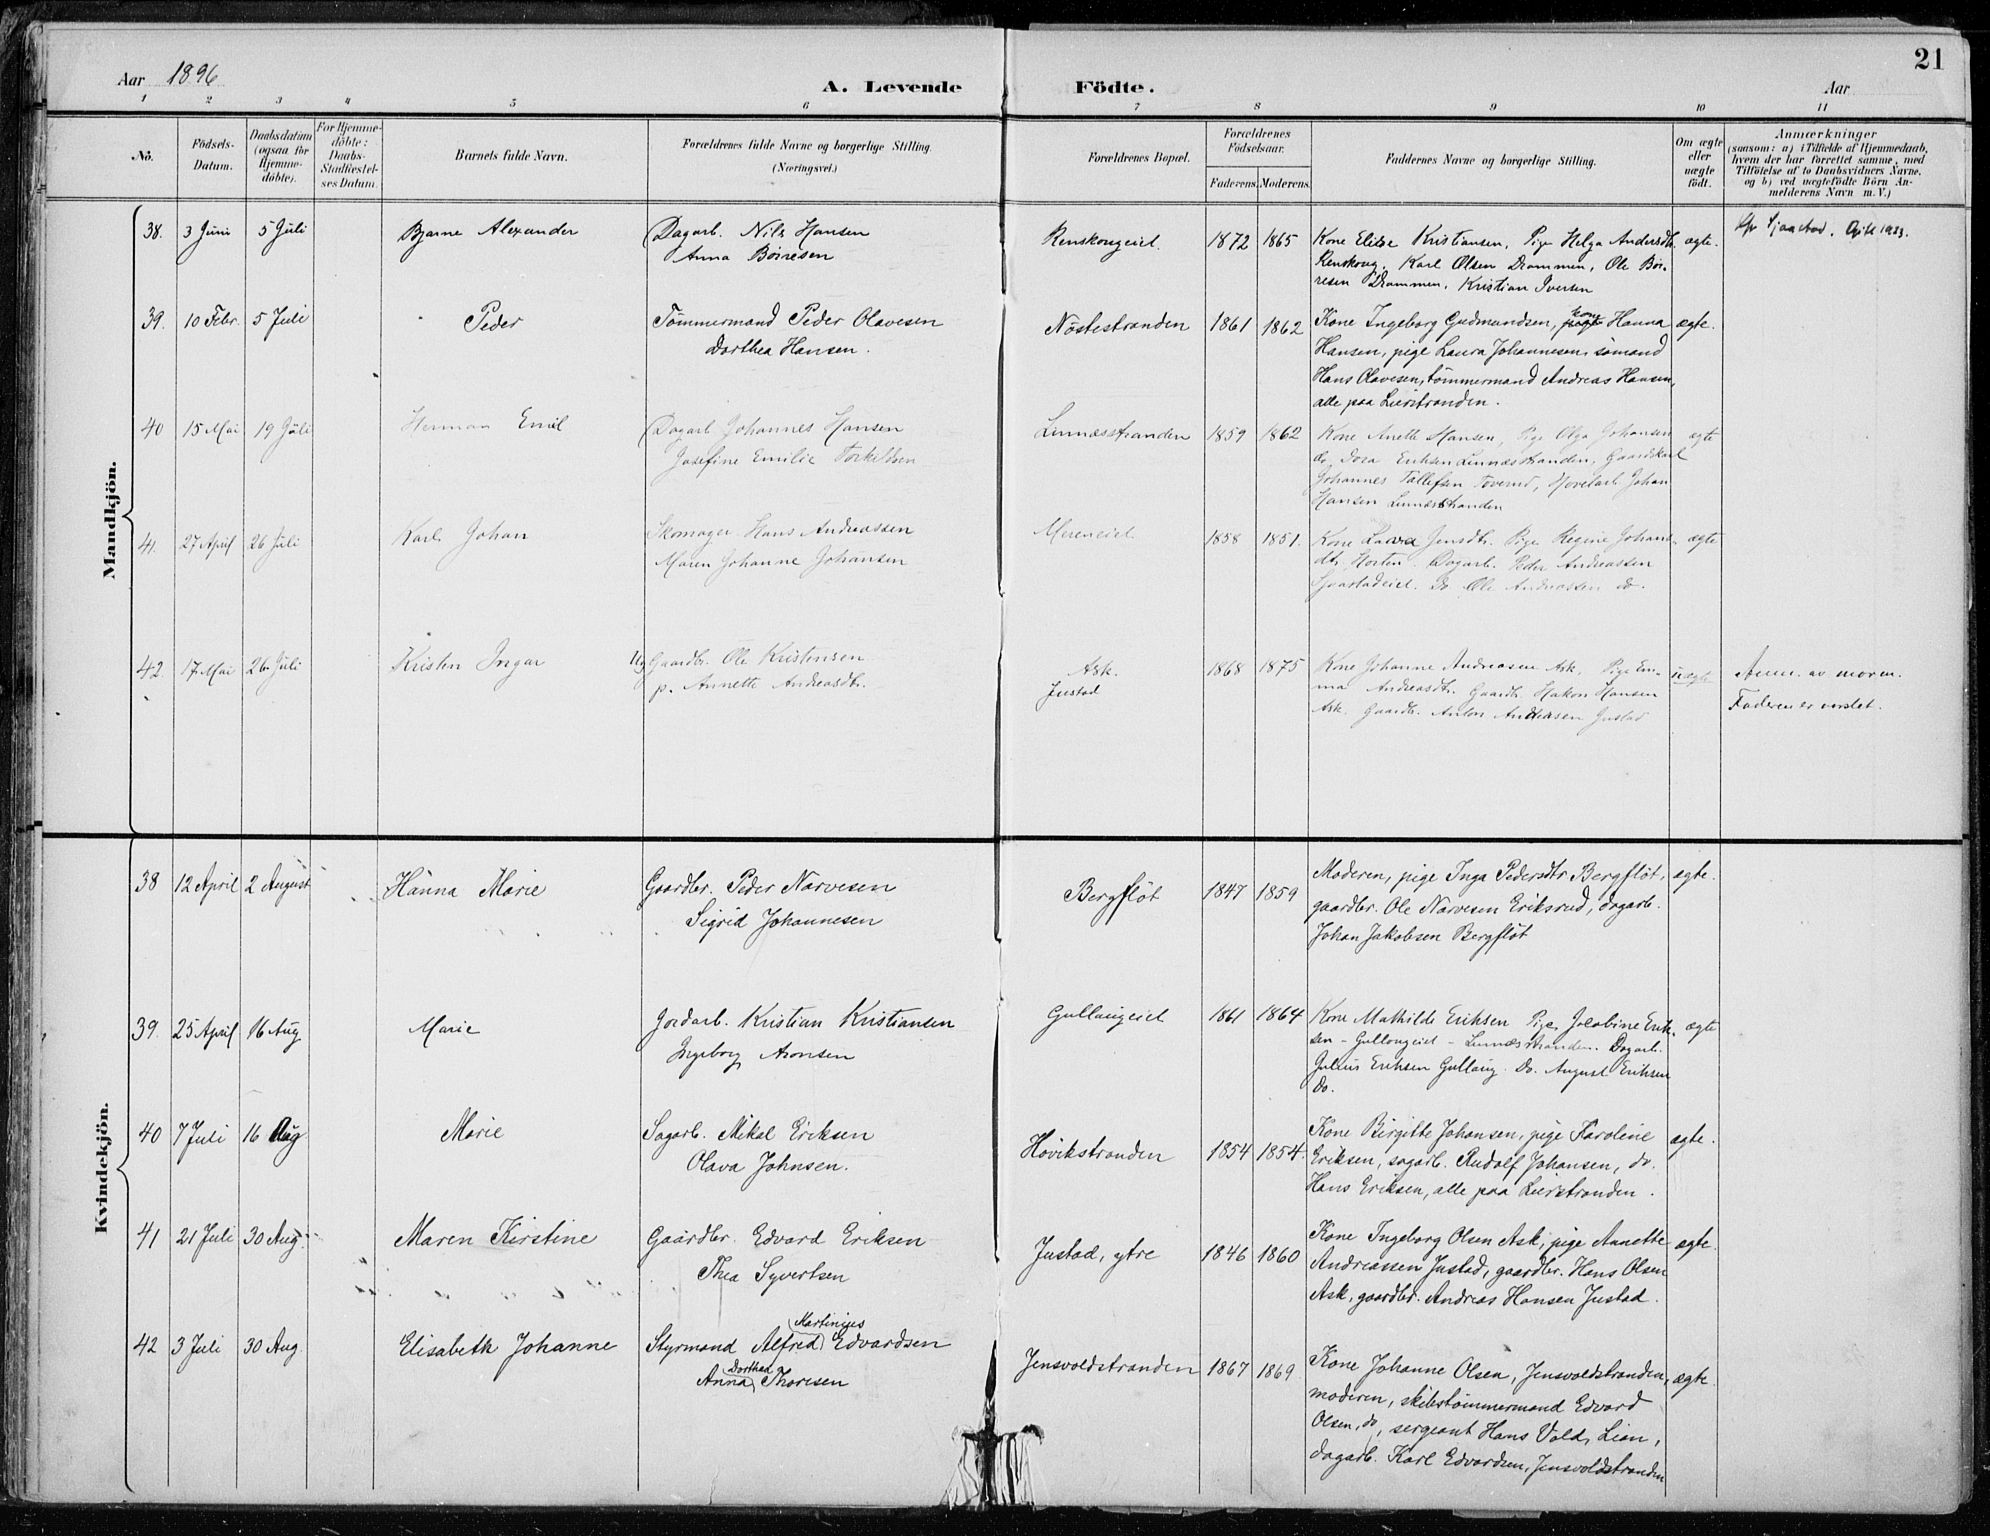 21
Aar 1896
A. Levende Födte.
Aar
1 2 3 4 5 6 7 8 9 10 11
No.
Födsels-Datum.
Daabsdatum (ogsaa for Hjemmedöbte).
For Hjemmedöbte: Daabs-Stadfæstelses Datum.
Barnets fulde Navn.
Forældrenes fulde Navne og borgerlige Stilling.
(Næringsvei.)
Forældrenes Bopæl.
Forældrenes Födselsaar.
Faderens. Moderens.
Faddernes Navne og borgerlige Stilling.
Om ægte eller uægte födt.
Anmærkninger
(saasom: a) i Tilfælde af Hjemmedaab,
hvem der har forrettet samme, med
Tilföielse af to Daabsvidners Navne,
og b) ved uægtefödte Börn An-
melderens Navn m. V.)
Mandkjön.
38. 3 Juni 5 Juli Bjarne Alexander Dagarb. Nils Hansen Renskougeiet. 1872 1865 Kone Elise Kristiansen, Pige Helga Andersdtr. ægte. Gift 1923.
Anna Börresen Renskoug, Karl Olsen Drammen, Ole Bör-
resen Drammen, Kristian Iversen
39. 10 Febr. 5 Juli Peder Tömmermand Peder Olavesen Nöstestranden 1861 1862 Kone Ingeborg Gudmundsen, kone Hanna ægte.
Dorthea Hansen. Hansen, pige Laura Johannesen, sömand
Hans Olavesen, tömmermand Andreas Hansen,
alle paa Lierstranden.
40 15 Mai 19 Juli Herman Emil Dagarb Johannes Hansen Linnæsstranden 1859 1862 Kone Anette Hansen, Pige Olga Johansen ægte
Josefine Emilie Torkeldsen do. Dora Eriksen Linnæsstranden, Gaardskarl
Johannes Tallefsen Tverud, Hövelarb. Johan
Hansen Linnæsstranden
41. 27 April 26 Juli Karl Johan Skomager Hans Andreassen Mereneiet 1858 1851. Kone Lava Jensdtr. Pige Regine Johans- ægte
Maren Johanne Johansen dtr. Horten. Dagarb. Peder Andreassen
Gjaarstadeiet. Do Ole Andreassen do.
42. 17 Mai 26 Juli Kristen Ingar Ug Gaardbr. Ole Kristensen Ask. 1868 1875 Kone Johanne Andreasen Ask, Pige Em- uægte Anm. av moren.
p. Annette Andreasdtr. Justad ma Andreasdtr. Gaardb. Hakon Hansen
Ask. Gaardb. Anton Andreasen Justad Faderen er varslet.
Kvindekjön.
38 12 April 2 August Hanna Marie Gaardbr. Peder Narvesen Bergflöt 1847 1859 Moderen, pige Inga Pedersdtr Bergflöt, ægte.
Sigrid Johannesen gaardbr. Ole Narvesen Eriksrud, dagarb.
Johan Jakobsen Bergflöt
39. 25 April 16 Aug Marie Jordarb. Kristian Kristiansen Gullaugeiet 1861 1864 Kone Mathilde Eriksen Pige Jacobine Erik- ægte
Ingeborg Aronsen sen - Gullaugeiet - Linnæsstranden. Dagarb.
Julius Eriksen Gullaug. Do. August Eriksen
do.
40 7 Juli 16 Aug Marie Sagarb. Mikal Eriksen Hövikstranden 1854 1854. Kone Birgitte Johansen, pige Karoline ægte.
Olava Johnsen. Eriksen, sagarb. Rudolf Johansen, do.
Hans Eriksen, alle paa Lierstranden.
41 21 Juli 30 Aug. Maren Kirstine Gaardbr. Edvard Eriksen Justad, ytre 1846 1860 Kone Ingeborg Olsen Ask, pige Annette ægte.
Thea Syvertsen Andreassen Justad, gaardbr. Hans Olsen
Ask, gaardbr. Andreas Hansen Justad.
42 3 Juli 30 Aug. Elisabeth Johanne Styrmand Alfred Martinius Edvardsen Jensvoldstranden 1867 1869 Kone Johanne Olsen, Jensvoldstranden, ægte.
Anna Dorthea Thoresen moderen, skibstömmermand Edvard
Olsen, do, sergeant Hans Vold, Lian,
dagarb. Karl Edvardsen, Jensvoldstranden